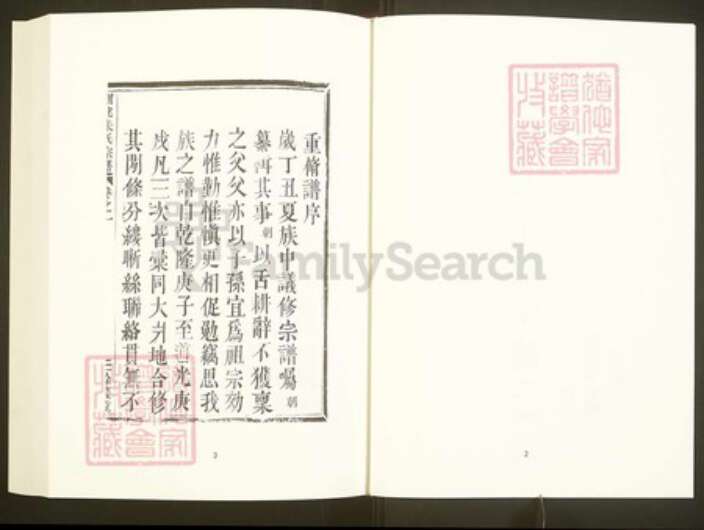 重脩譜序
歲丁丑夏族中議修宗譜囑朝
纂再其事朝以舌耕辭不獲稟
之父父亦以子孫宜爲祖宗効
力惟勤惟慎更相促勉竊思我
族之譜自乾隆庚子至道光庚
戌凡三次皆彙同大宗地合修
其間條分縷晰絲聯絡貫無不
氏宗譜 卷之一
3
2
FamilySearch
譜學會
收藏